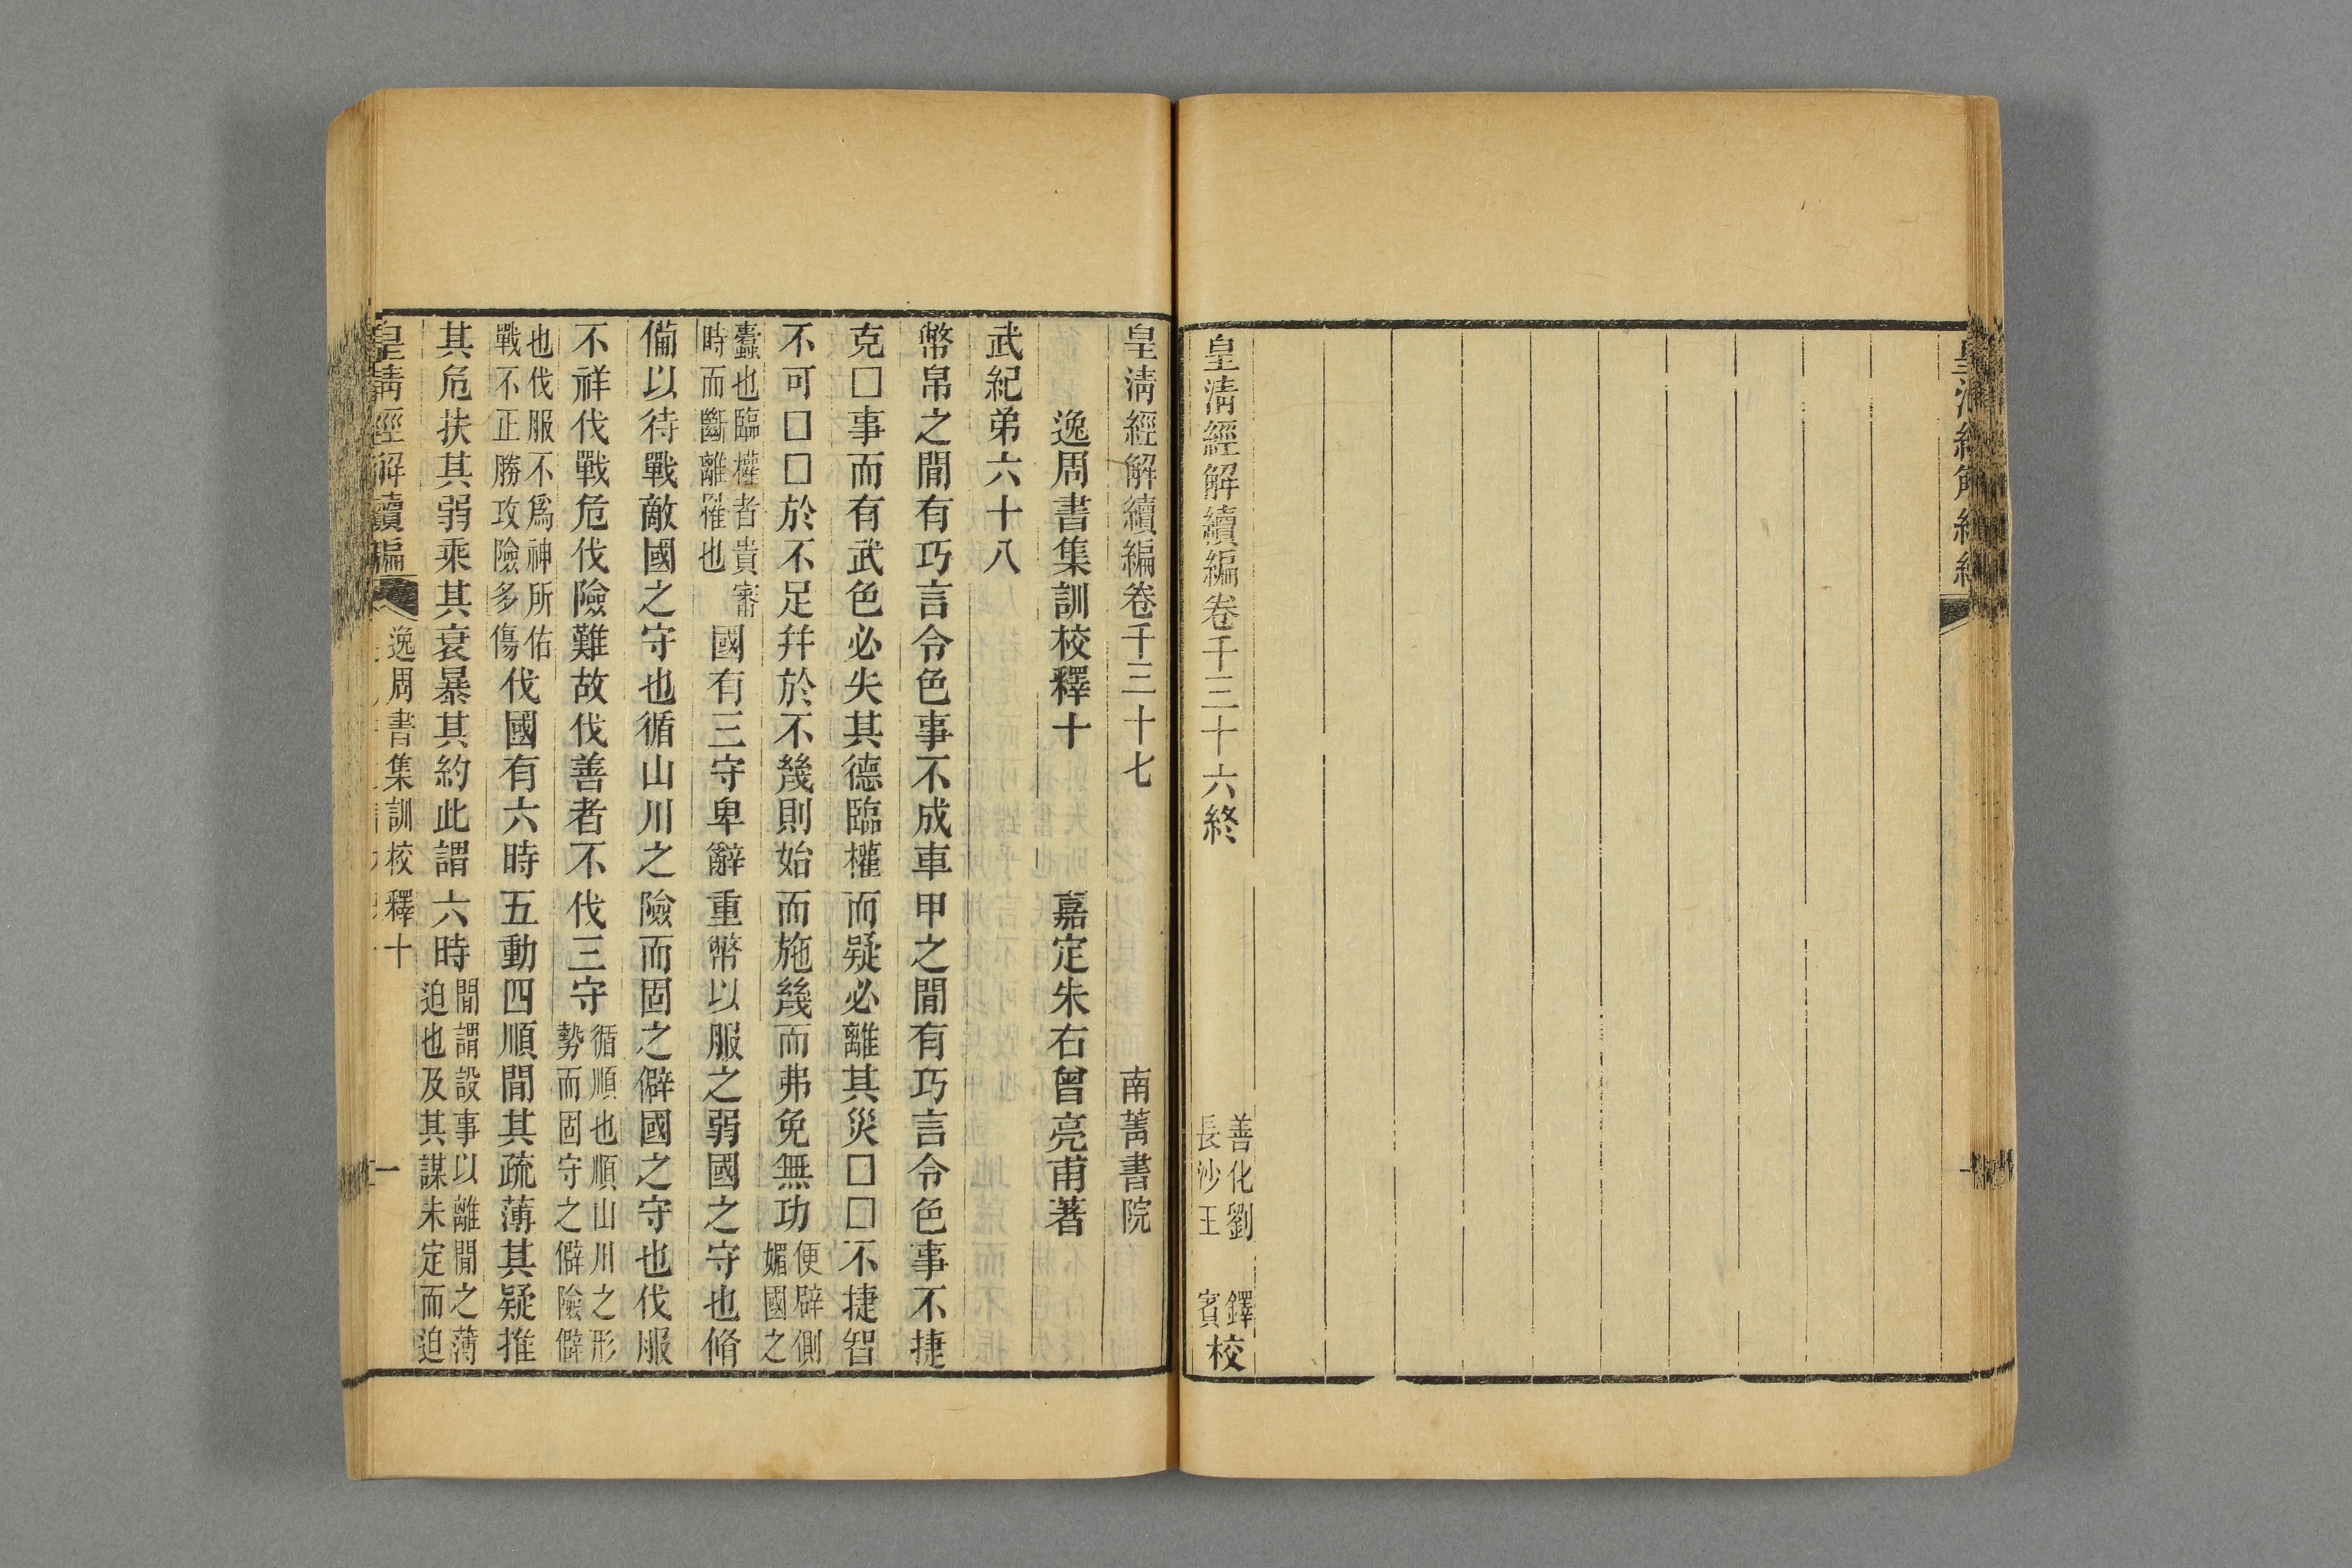 皇清經解續編卷千三十六終
善化劉　鐸
長沙王　賓校
皇清經解續編卷千三十七　南菁書院
逸周書集訓校釋十　嘉定朱右曾亮甫著
武紀弟六十八
幣帛之閒有巧言令色事不成車甲之閒有巧言令色事不捷
克□事而有武色必失其德臨權而疑必離其災□□不捷智
不可□□於不足幷於不幾則始而施幾而弗免無功
便辟側
媚國之
蠹也臨權者貴審
時而斷離罹也
國有三守卑辭重幣以服之弱國之守也脩
備以待戰敵國之守也循山川之險而固之僻國之守也伐服
不祥伐戰危伐險難故伐善者不伐三守
循順也順山川之形
勢而固守之僻險僻
也伐服不爲神所佑
戰不正勝攻險多傷
伐國有六時五動四順閒其疏薄其疑推
其危扶其弱乘其衰暴其約此謂六時
閒謂設事以離閒之薄
迫也及其謀未定而迫
皇清經解續編
逸周書集訓校釋十
一